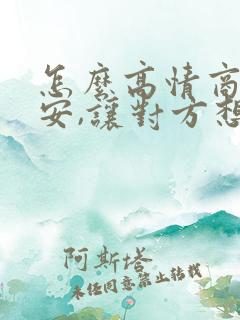 怎麼高情商
安,讓對方想
阿斯塔
未經同意禁止轉載